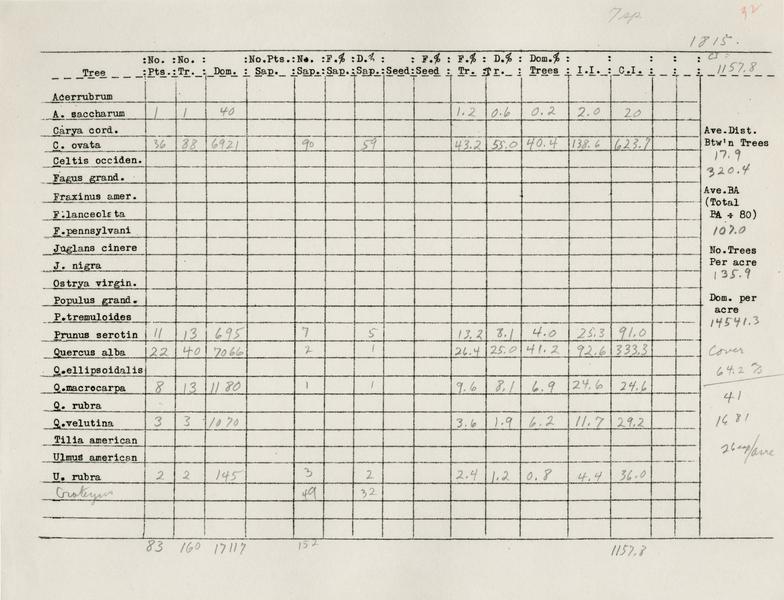 7 sp. 32
1815.
CI =
1157.8
:No. :No. : :No.Pts.:No. :F.% :D.% : : F.% : F.% :D.% :Dom.% : : : : :
Tree :Pts.:Tr. : Dom. : Sap. :Sap.:Sap.:Sap.:Seed:Seed : Tr. :Tr. :Trees : I.I. : C.I. : : :
Acerrubrum
A. saccharum 1 1 40 1.2 0.6 0.2 2.0 20
Carya cord.
C. ovata 36 88 6921 90 59 43.2 55.0 40.4 138.6 623.7
Celtis occiden.
Fagus grand.
Fraxinus amer.
F.lanceolata
F.pennsylvani
Juglans cinere
J. nigra
Ostrya virgin.
Populus grand.
P.tremuloides
Prunus serotin 11 13 695 7 5 13.2 8.1 4.0 25.3 91.0
Quercus alba 22 40 7066 2 1 26.4 25.0 41.2 92.6 333.3
Q.ellipsoidalis
Q.macrocarpa 8 13 1180 1 1 9.6 8.1 6.9 24.6 24.6
Q. rubra
Q.velutina 3 3 1070 3.6 1.9 6.2 11.7 29.2
Tilia american
Ulmus american
U. rubra 2 2 145 3 2 2.4 1.2 0.8 4.4 36.0
49 32
83 160 17117 152 1157.8
Ave.Dist.
Btw'n Trees
17.9
320.4
Ave.BA
(Total
BA ÷ 80)
107.0
No.Trees
Per acre
135.9
Dom. per
acre
14541.3
Cover
64.2 %
41
1681
/acre